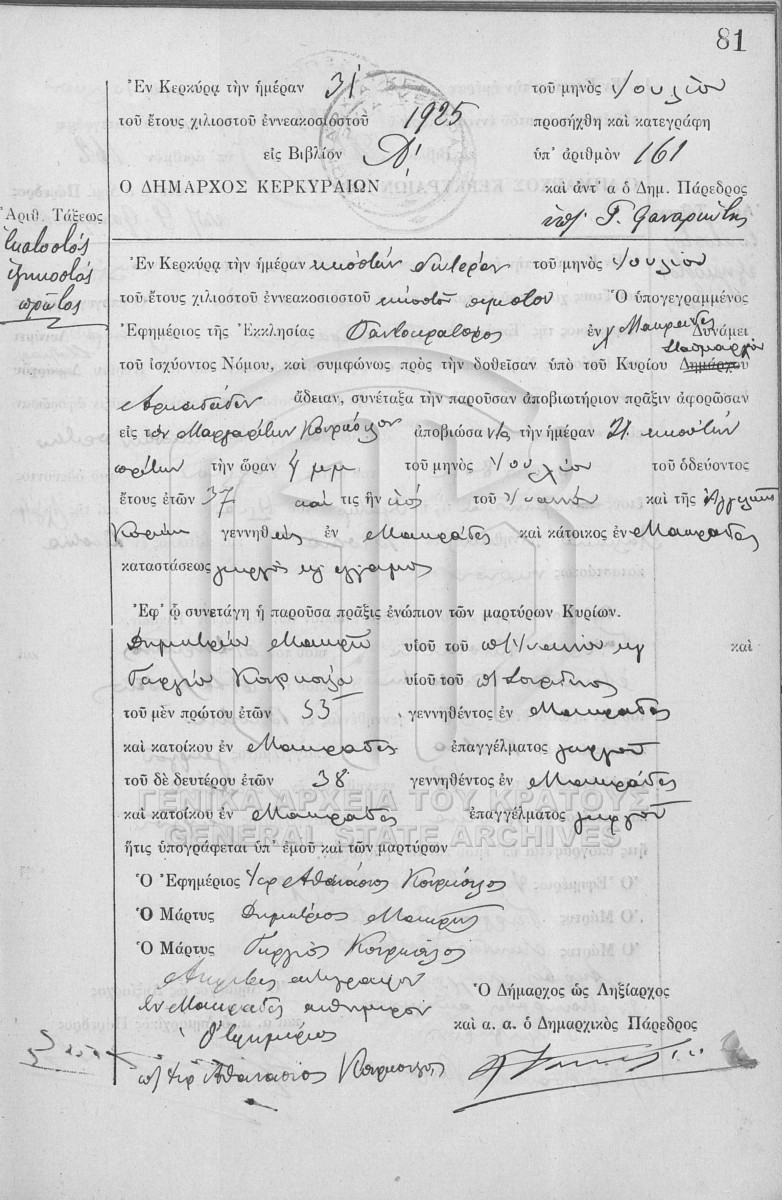 81
Ἐν Κερκύρᾳ τὴν ἡμέραν 31 τοῦ μηνὸς Ἰουλίου
τοῦ ἔτους χιλιοστοῦ ἐννεακοσιοστοῦ 1925 προσήχθη καὶ κατεγράφη
εἰς Βιβλίον Α' ὑπ' ἀριθμὸν 161
Ο ΔΗΜΑΡΧΟΣ ΚΕΡΚΥΡΑΙΩΝ καὶ ἀντ' α ὁ Δημ. Πάρεδρος
Ἀριθ. Τάξεως
ἑκατοστός
ἑξηκοστός
πρῶτος
ὑπ.
Ἐν Κερκύρᾳ τὴν ἡμέραν εἰκοστὴν δευτέραν τοῦ μηνὸς Ἰουλίου
τοῦ ἔτους χιλιοστοῦ ἐννεακοσιοστοῦ εἰκοστοῦ πέμπτου Ὁ ὑπογεγραμμένος
Ἐφημέριος τῆς Ἐκκλησίας Παντοκράτορος ἐν Μακράδες Δυνάμει
τοῦ ἰσχύοντος Νόμου, καὶ συμφώνως πρὸς τὴν δοθεῖσαν ὑπὸ τοῦ Κυρίου Δημάρχου
ἄδειαν, συνέταξα τὴν παροῦσαν ἀποβιωτήριον πρᾶξιν ἀφορῶσαν
εἰς τὸν Μαργαρίτην Κουρκούλον ἀποβιώσαντα τὴν ἡμέραν 21 εἰκοστὴν
πρώτην τὴν ὥραν 4 μμ τοῦ μηνὸς Ἰουλίου τοῦ ὁδεύοντος
ἔτους ἐτῶν 37 καὶ τις ἦν υἱὸς τοῦ Ἰωάννου καὶ τῆς Ἀγγελικῆς
γεννηθεὶς ἐν Μακράδες καὶ κάτοικος ἐν Μακράδες
καταστάσεως γεωργὸς κ ἔγγαμος
Ἐφ' ᾧ συνετάγη ἡ παροῦσα πρᾶξις ἐνώπιον τῶν μαρτύρων Κυρίων.
Δημητρίου Μακρῆ υἱοῦ τοῦ π/ Ἰωάννου καὶ
Γεωργίου Κουρκούλο υἱοῦ τοῦ π/ Σπυρίδωνος
τοῦ μὲν πρώτου ἐτῶν 55 γεννηθέντος ἐν Μακράδες
καὶ κατοίκου ἐν Μακράδες ἐπαγγέλματος γεωργοῦ
τοῦ δὲ δευτέρου ἐτῶν 38 γεννηθέντος ἐν Μακράδες
καὶ κατοίκου ἐν Μακράδες ἐπαγγέλματος γεωργοῦ
ΓΕΝΙΚΑ ΑΡΧΕΙΑ ΤΟΥ ΚΡΑΤΟΥΣ
GENERAL STATE ARCHIVES
ἥτις ὑπογράφεται ὑπ' ἐμοῦ καὶ τῶν μαρτύρων
Ὁ Ἐφημέριος Ἱερ Ἀθανάσιος Κουρκούλος
Ὁ Μάρτυς Δημήτριος Μακρῆς
Ὁ Μάρτυς Γεώργιος Κουρκούλος
Ἀκριβὲς ἀντίγραφον
Ἐν Μακράδες αὐθημερόν
Ὁ Ἐφημέριος
π/ Ἱερ Ἀθανάσιος Κουρκούλος
Ὁ Δήμαρχος ὡς Ληξίαρχος
καὶ α. α. ὁ Δημαρχικὸς Πάρεδρος